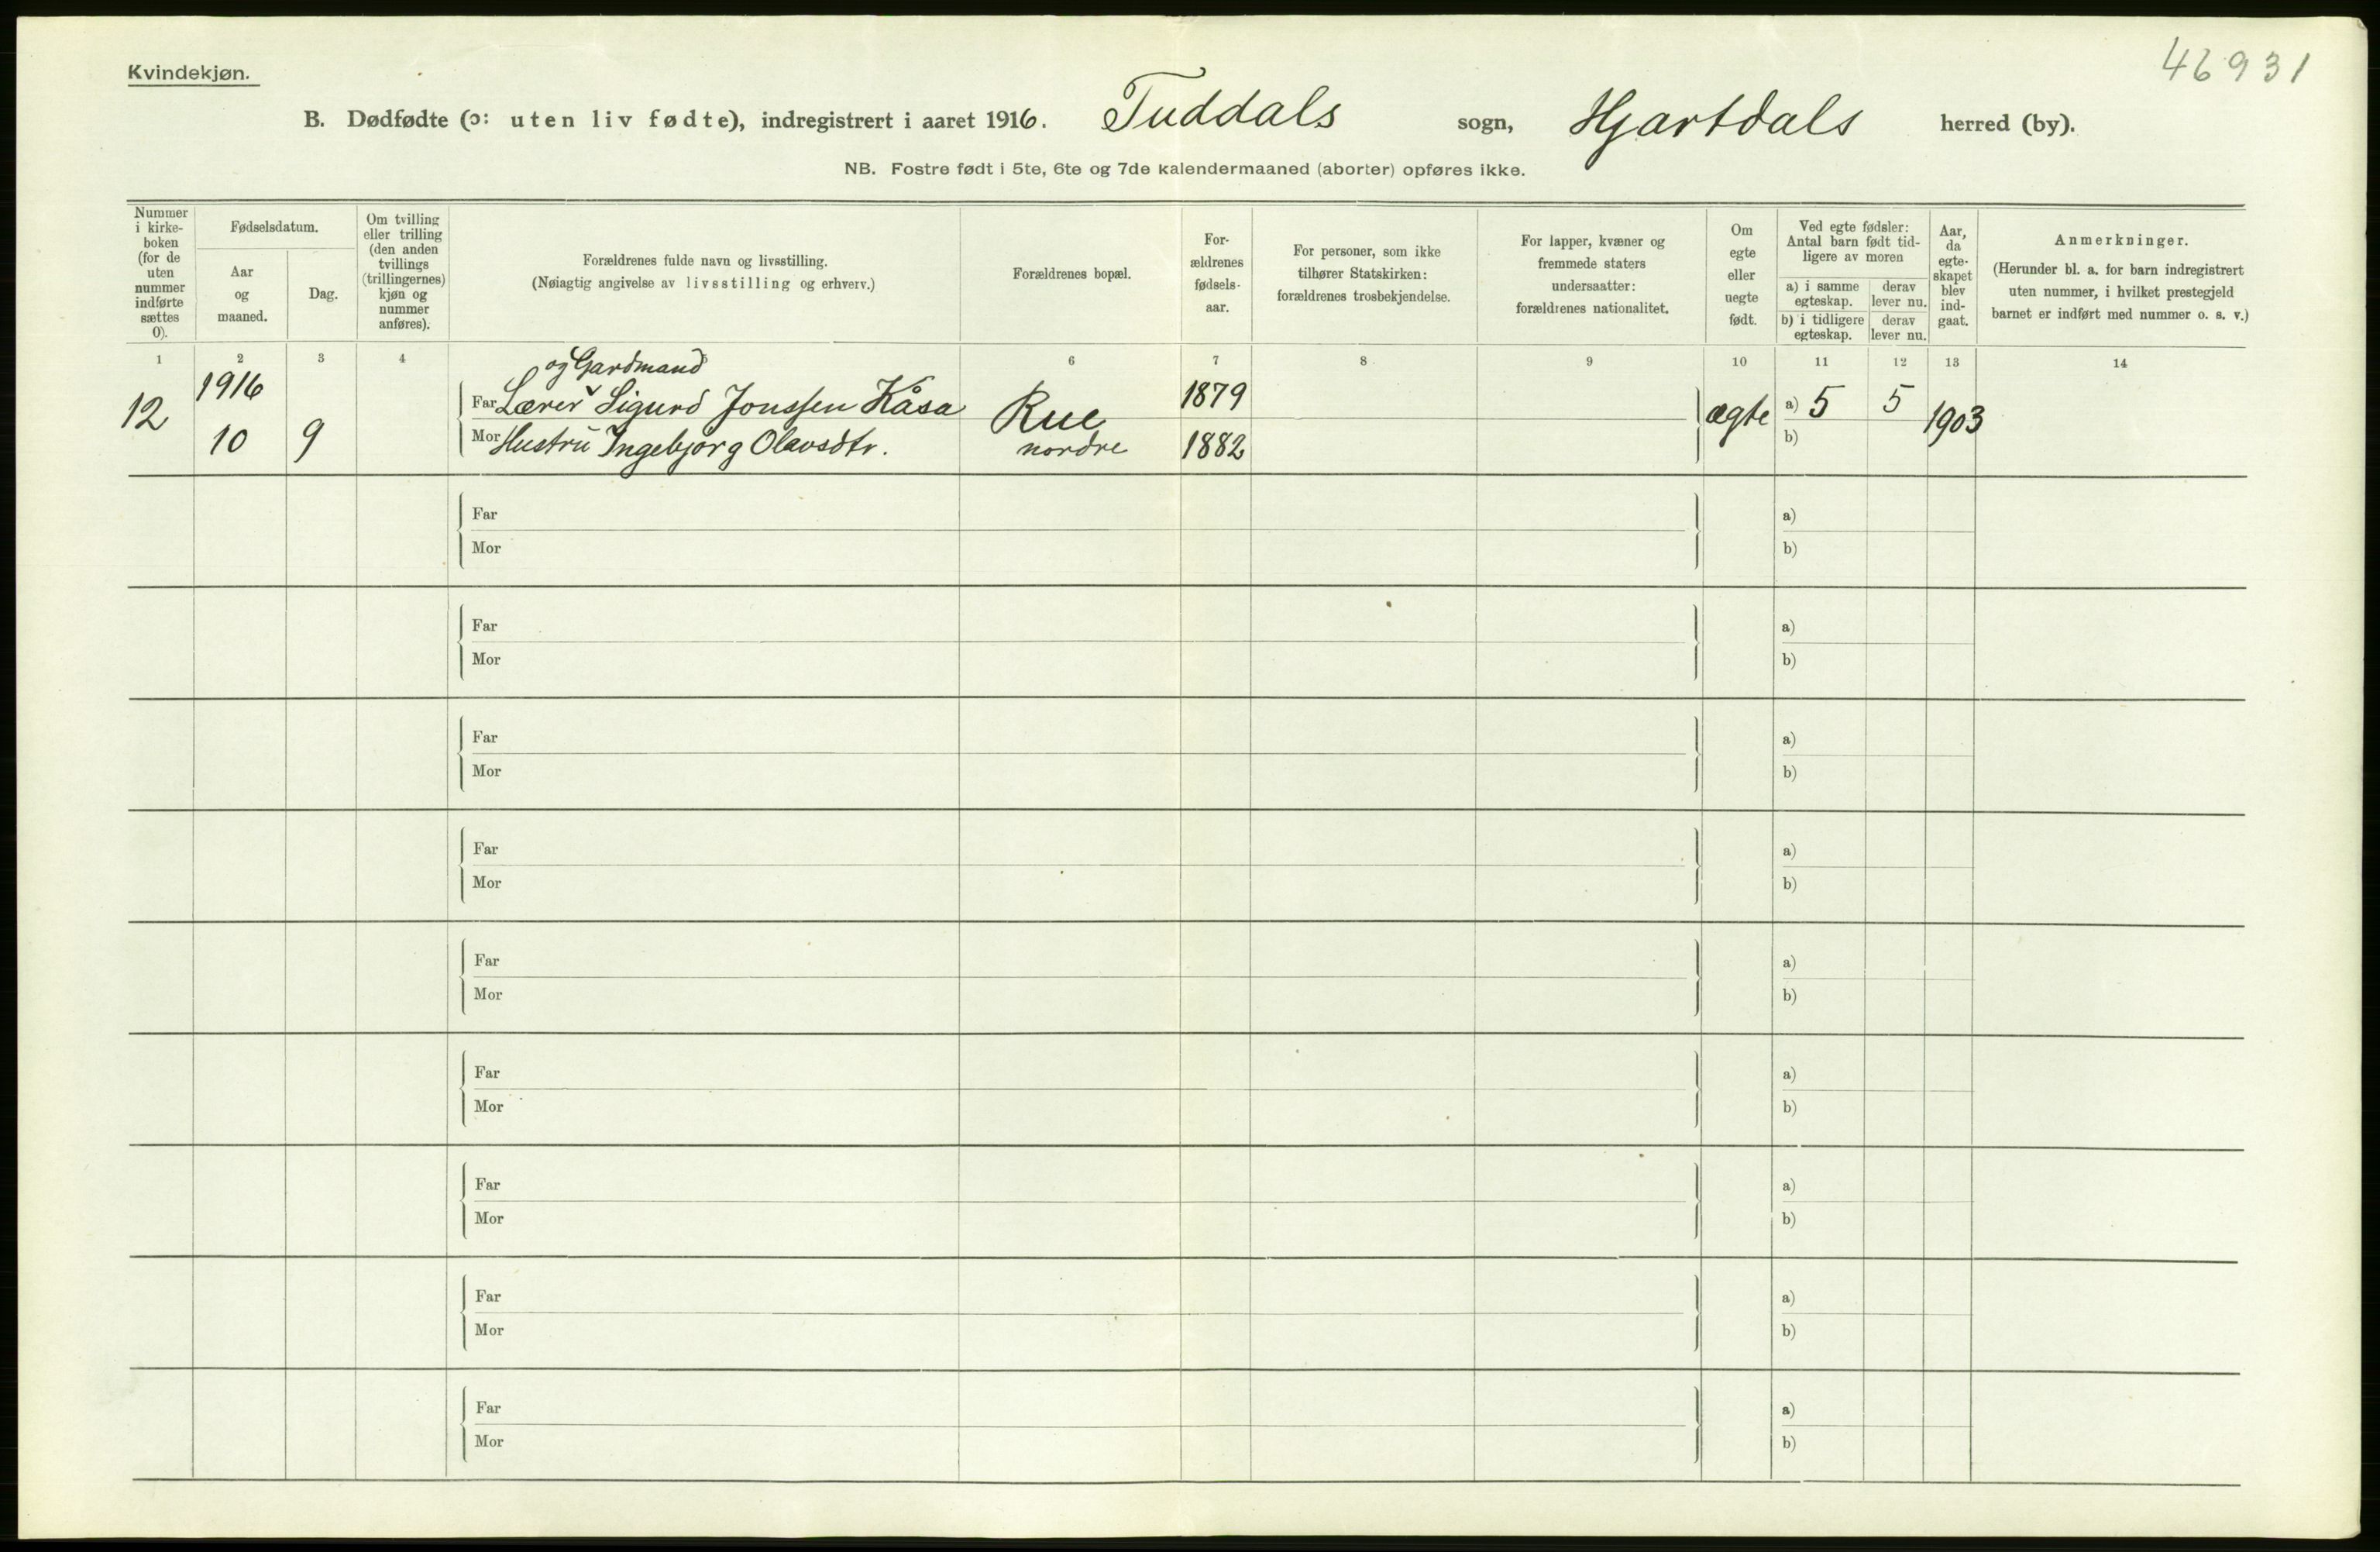 46931
Kvindekjøn.
B. Dødfødte (ɔ: uten liv fødte), indregistrert i aaret 1916. Tuddals sogn, Hjartdals herred (by).
NB. Fostre født i 5te, 6te og 7de kalendermaaned (aborter) opføres ikke.
Nummer
i kirke-
boken
(for de
uten
nummer
indførte
sættes
0).
Fødselsdatum.
Aar
og
maaned.
Dag.
Om tvilling
eller trilling
(den anden
tvillings
(trillingernes)
kjøn og
nummer
anføres).
Forældrenes fulde navn og livsstilling.
(Nøiagtig angivelse av livsstilling og erhverv.)
Forældrenes bopæl.
For-
ældrenes
fødsels-
aar.
For personer, som ikke
tilhører Statskirken:
forældrenes trosbekjendelse.
For lapper, kvæner og
fremmede staters
undersaatter:
forældrenes nationalitet.
Om
egte
eller
uegte
født.
Ved egte fødsler:
Antal barn født tid-
ligere av moren
a) i samme
egteskap.
derav
lever nu.
b) i tidligere
egteskap.
derav
lever nu.
Aar,
da
egte-
skapet
blev
ind-
gaat.
Anmerkninger.
(Herunder bl. a. for barn indregistrert
uten nummer, i hvilket prestegjeld
barnet er indført med nummer o. s. v.)
1 2 3 4 5 6 7 8 9 10 11 12 13 14
12
1916
10 9
og Gardmand
Far Lærer Sigurd Jonssen Kåsa
Mor Hustru Ingebjørg Olavsdtr.
Rue
nordre
1879
1882
ægte
a) 5 5
b)
1903
Far a)
Mor b)
Far a)
Mor b)
Far a)
Mor b)
Far a)
Mor b)
Far a)
Mor b)
Far a)
Mor b)
Far a)
Mor b)
Far a)
Mor b)
Far a)
Mor b)